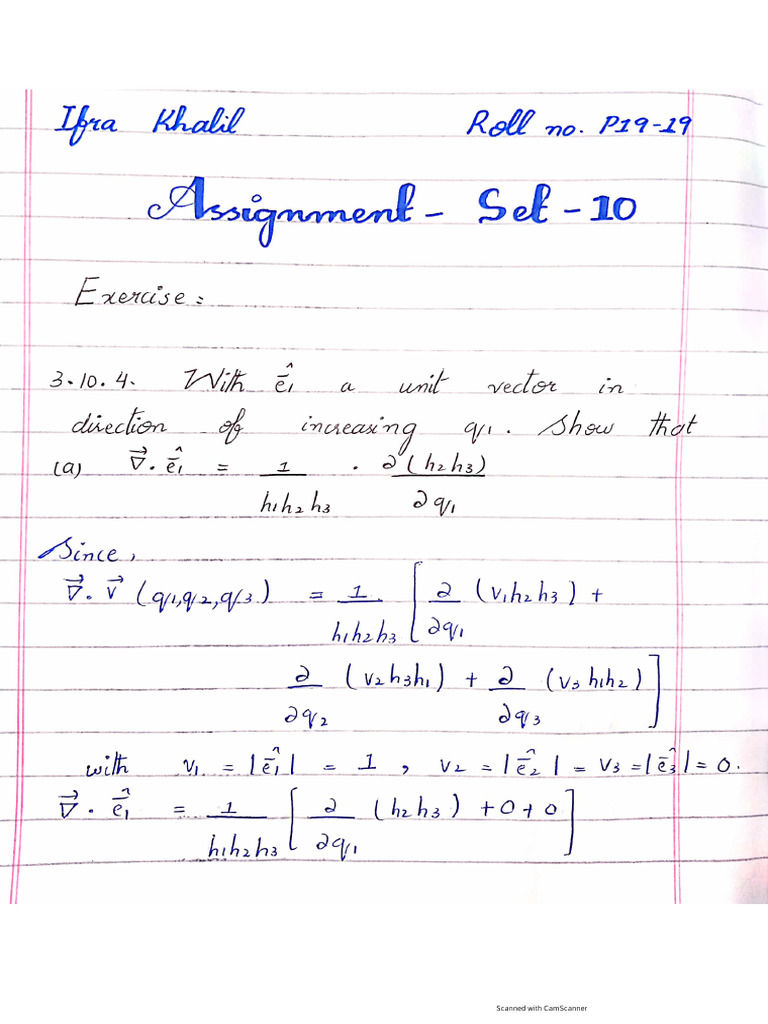 Ifra Khalil Roll no. P19-19
Assignment - Set - 10
Exercise:
3.10.4. With ê₁ a unit vector in
direction of increasing q₁. Show that
(a) ∇⃗ · ê₁ = 1/(h₁h₂h₃) · ∂(h₂h₃)/∂q₁
Since,
∇⃗ · v⃗ (q₁,q₂,q₃) = 1/(h₁h₂h₃) [ ∂/∂q₁ (v₁h₂h₃) +
∂/∂q₂ (v₂h₃h₁) + ∂/∂q₃ (v₃h₁h₂) ]
with v₁ = |ê₁| = 1 , v₂ = |ê₂| = v₃ = |ê₃| = 0.
∇⃗ · ê₁ = 1/(h₁h₂h₃) [ ∂/∂q₁ (h₂h₃) + 0 + 0 ]
Scanned with CamScanner